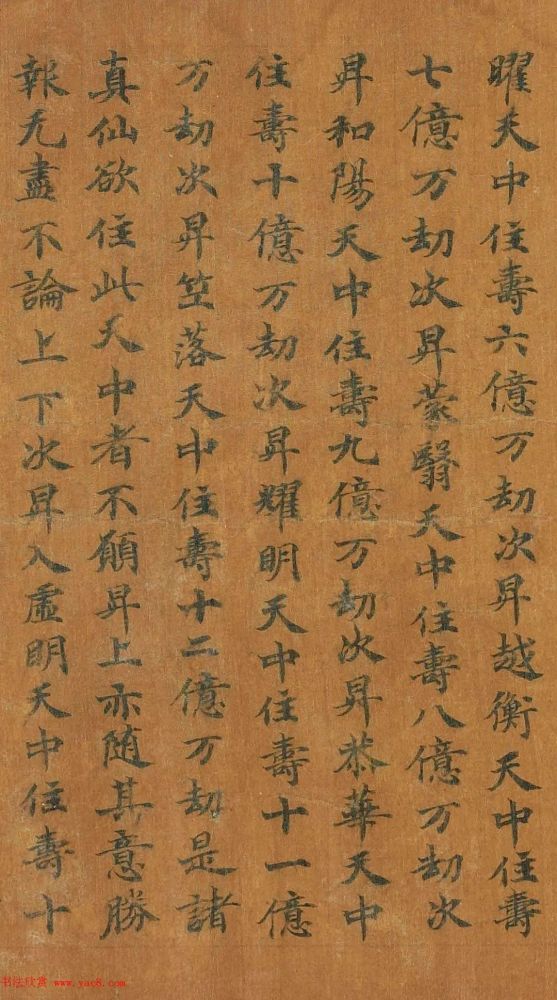 曜天中住壽六億万劫次昇越衡天中住壽
七億万劫次昇蒙翳天中住壽八億万劫次
昇和陽天中住壽九億万劫次昇恭華天中
住壽十億万劫次昇耀明天中住壽十一億
万劫次昇竺落天中住壽十二億万劫是諸
真仙欲住此天中者不願昇上亦随其意勝
報无盡不論上下次昇入虛明天中住壽十
书法欣赏 www.yac8.com